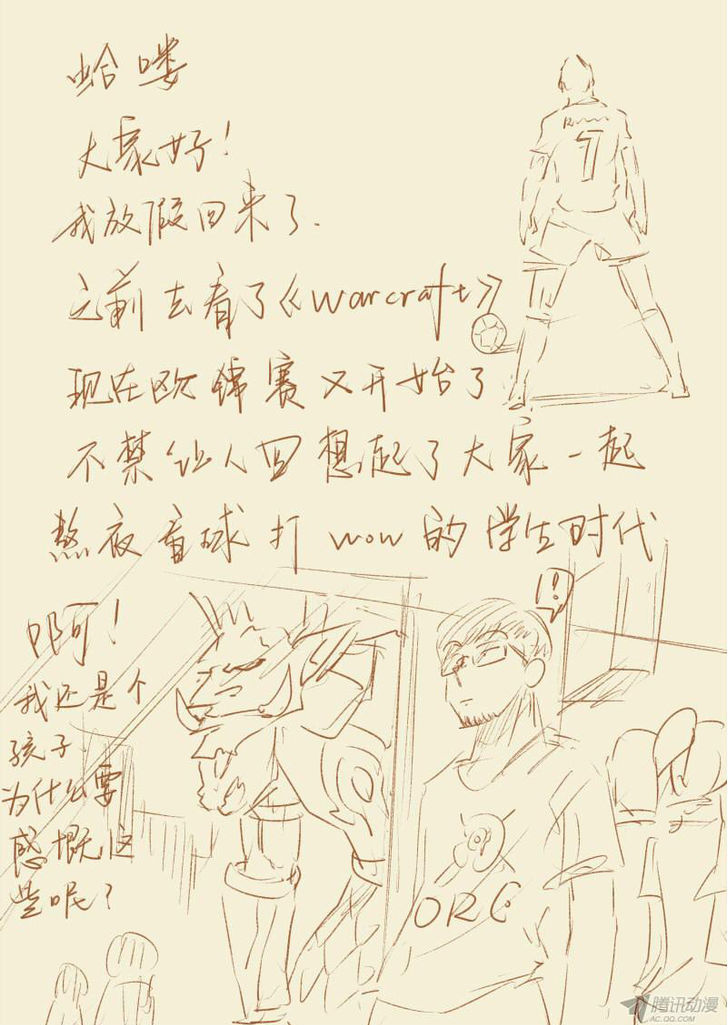 哈喽
大家好！
我放假回来了.
之前去看了《warcraft》
现在欧锦赛又开始了
不禁让人回想起了大家一起
熬夜看球打wow的学生时代
啊！
我还是个
孩子
为什么要
感慨这
些呢？
7
!
ORC
腾讯动漫
AC.QQ.COM